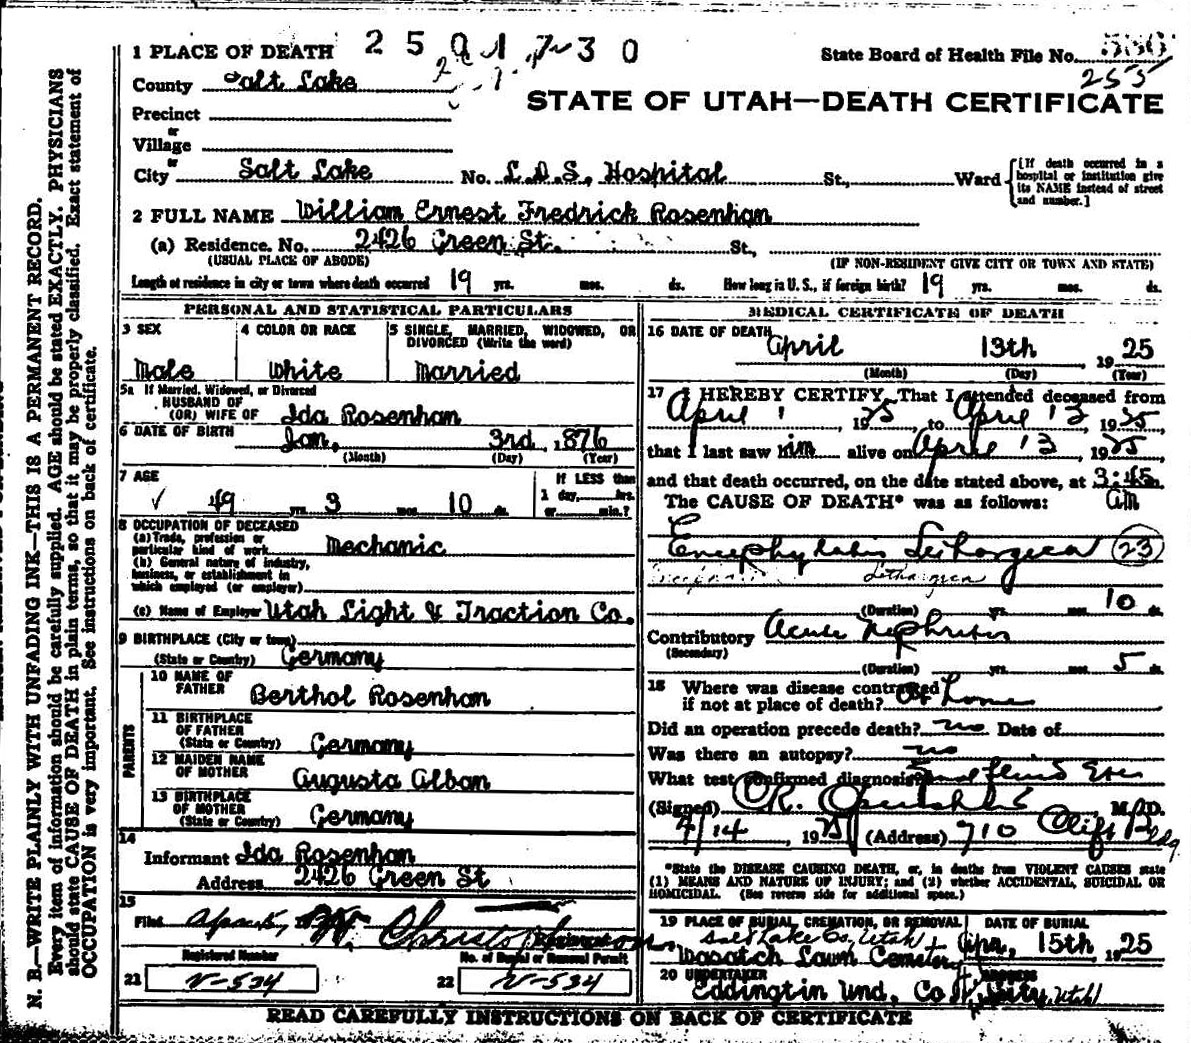 N. B.—WRITE PLAINLY WITH UNFADING INK—THIS IS A PERMANENT RECORD.
Every item of information should be carefully supplied. AGE should be stated EXACTLY. PHYSICIANS
should state CAUSE OF DEATH in plain terms, so that it may be properly classified. Exact statement of
OCCUPATION is very important. See instructions on back of certificate.
1 PLACE OF DEATH
State Board of Health File No.
255
County Salt Lake
STATE OF UTAH—DEATH CERTIFICATE
Precinct
or
Village
or
City Salt Lake No. L.D.S. Hospital St., Ward [If death occurred in a hospital or institution give its NAME instead of street and number.]
2 FULL NAME William Ernest Fredrick Rosenhan
(a) Residence. No. 2426 Green St. St.,
(USUAL PLACE OF ABODE) (IF NON-RESIDENT GIVE CITY OR TOWN AND STATE)
Length of residence in city or town where death occurred 19 yrs. mos. ds. How long in U. S., if foreign birth? 19 yrs. mos. ds.
PERSONAL AND STATISTICAL PARTICULARS
3 SEX
Male
4 COLOR OR RACE
White
5 SINGLE, MARRIED, WIDOWED, OR
DIVORCED (Write the word)
Married
5a If Married, Widowed, or Divorced
HUSBAND OF
(OR) WIFE OF Ida Rosenhan
6 DATE OF BIRTH Jan, 3rd, 1876
(Month) (Day) (Year)
7 AGE
49 yrs. 3 mos. 10 ds.
If LESS than
1 day, hrs.
or min.?
8 OCCUPATION OF DECEASED
(a) Trade, profession or
particular kind of work Mechanic
(b) General nature of industry,
business, or establishment in
which employed (or employer)
(c) Name of Employer Utah Light & Traction Co.
9 BIRTHPLACE (City or town)
(State or Country) Germany
PARENTS
10 NAME OF
FATHER Berthol Rosenhan
11 BIRTHPLACE
OF FATHER
(State or Country) Germany
12 MAIDEN NAME
OF MOTHER Augusta Alban
13 BIRTHPLACE
OF MOTHER
(State or Country) Germany
14
Informant Ida Rosenhan
Address 2426 Green St
15
Filed
Registered Number
No. of Burial or Removal Permit
21 V-534
22 V-534
MEDICAL CERTIFICATE OF DEATH
16 DATE OF DEATH
April 13th 1925
(Month) (Day) (Year)
17 I HEREBY CERTIFY, That I attended deceased from
April 1, 1925, to April 13, 1925
that I last saw him alive on April 13, 1925
and that death occurred, on the date stated above, at 3:45 m.
The CAUSE OF DEATH* was as follows: am
Lethargica 23
(Duration) yrs. mos. 10 ds.
Contributory Acute Nephritis
(Secondary)
(Duration) yrs. mos. 5 ds.
18 Where was disease contracted
if not at place of death? at Home
Did an operation precede death? no Date of
Was there an autopsy? no
What test confirmed diagnosis?
(Signed) M. D.
4/14 1925 (Address) 710 Clift Bldg.
*State the DISEASE CAUSING DEATH, or, in deaths from VIOLENT CAUSES state
(1) MEANS AND NATURE OF INJURY; and (2) whether ACCIDENTAL, SUICIDAL OR
HOMICIDAL. (See reverse side for additional space.)
19 PLACE OF BURIAL, CREMATION, OR REMOVAL
Salt Lake Co, Utah
Wasatch Lawn Cemetery
DATE OF BURIAL
Apr, 15th, 1925
20 UNDERTAKER
ADDRESS
Eddington Und. Co City, Utah
READ CAREFULLY INSTRUCTIONS ON BACK OF CERTIFICATE